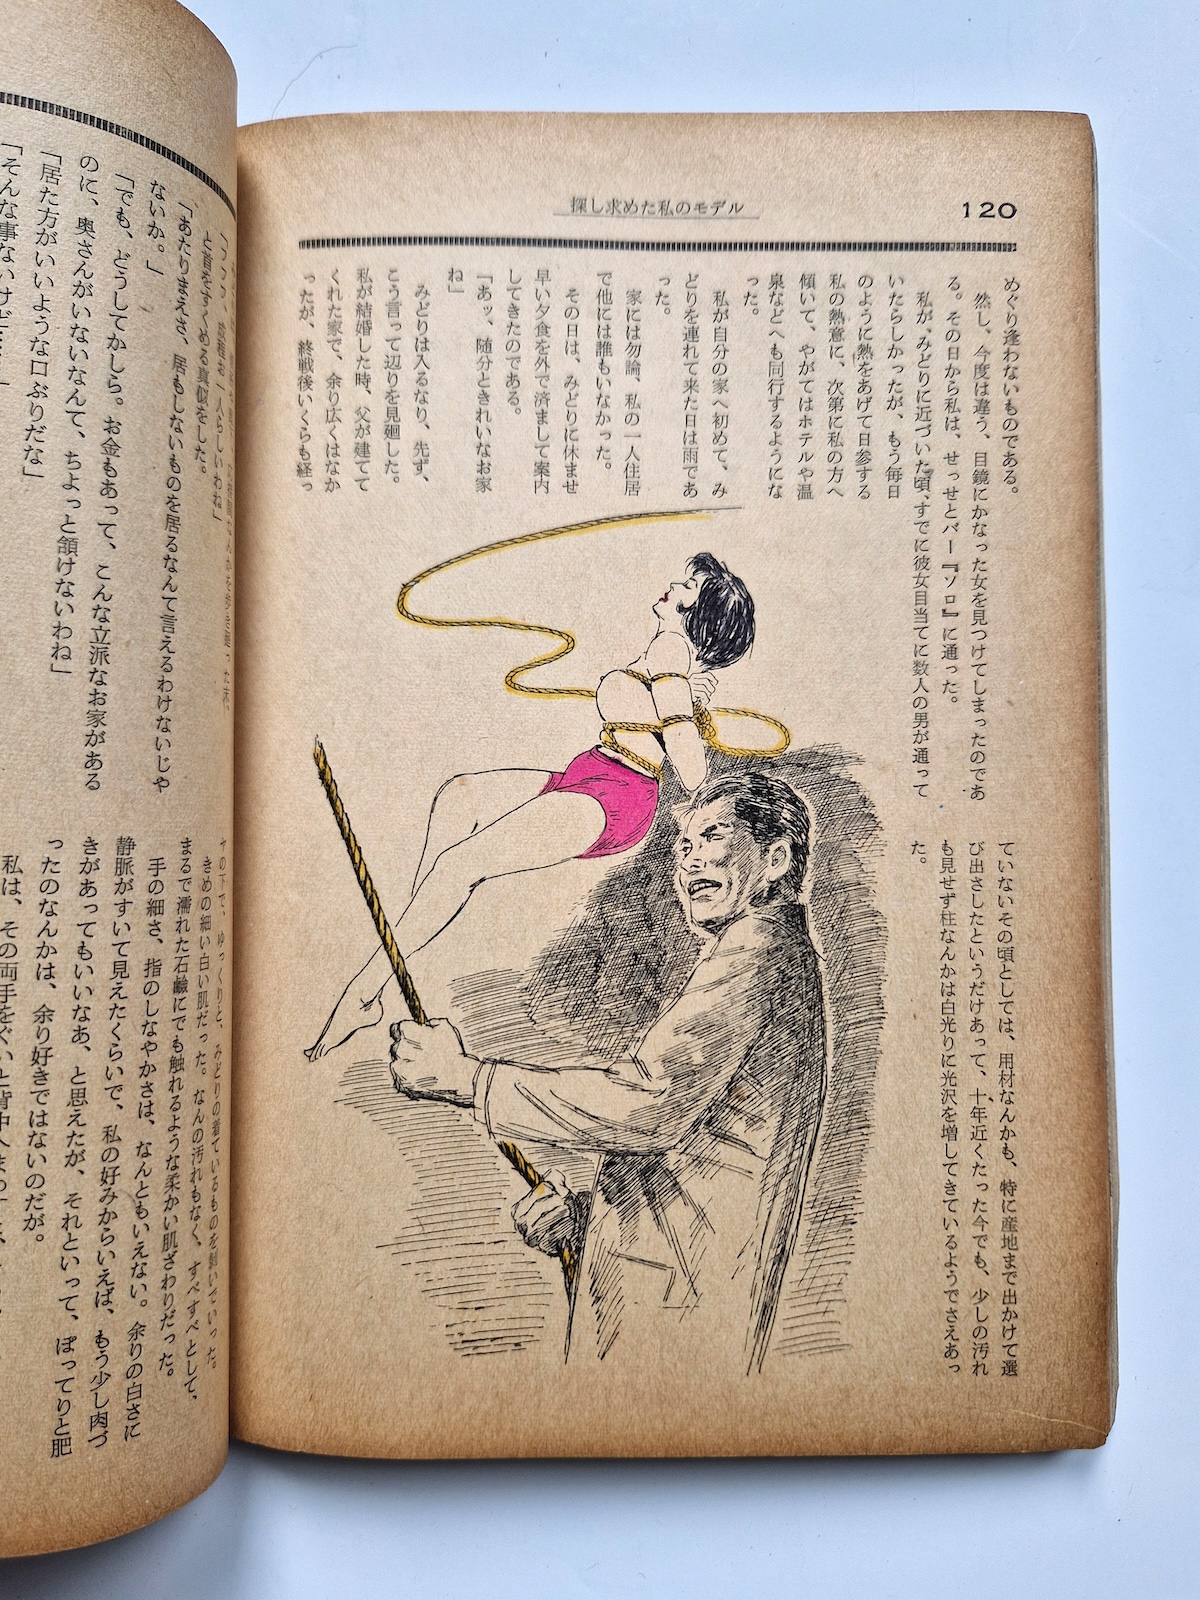 探し求めた私のモデル
120
めぐり逢わないものである。
然し、今度は違う、目鏡にかなった女を見つけてしまったのであ
る。その日から私は、せっせとバー『ソロ』に通った。
私が、みどりに近づいた頃、すでに彼女目当てに数人の男が通って
いたらしかったが、もう毎日
のように熱をあげて日参する
私の熱意に、次第に私の方へ
傾いて、やがてはホテルや温
泉などへも同行するようにな
った。
私が自分の家へ初めて、み
どりを連れて来た日は雨であ
った。
家には勿論、私の一人住居
で他には誰もいなかった。
その日は、みどりに休ませ
早い夕食を外で済まして案内
してきたのである。
「あッ、随分ときれいなお家
ね」
みどりは入るなり、先ず、
こう言って辺りを見廻した。
私が結婚した時、父が建てて
くれた家で、余り広くはなか
ったが、終戦後いくらも経っ
ていないその頃としては、用材なんかも、特に産地まで出かけて選
び出さしたというだけあって、十年近くたった今でも、少しの汚れ
も見せず柱なんかは白光りに光沢を増してきているようでさえあっ
た。
一人らしいわね」
と首をすくめる真似をした。
「あたりまえさ、居もしないものを居るなんて言えるわけないじゃ
ないか。」
「でも、どうしてかしら。お金もあって、こんな立派なお家がある
のに、奥さんがいないなんて、ちょっと頷けないわね」
「居た方がいいような口ぶりだな」
「そんな事ないけど
の下で、ゆっくりと、みどりの着ているものを剝いでいった。
きめの細い白い肌だった。なんの汚れもなく、すべすべとして、
まるで濡れた石鹼にでも触れるような柔かい肌ざわりだった。
手の細さ、指のしなやかさは、なんともいえない。余りの白さに
静脈がすいて見えたくらいで、私の好みからいえば、もう少し肉づ
きがあってもいいなあ、と思えたが、それといって、ぽってりと肥
ったのなんかは、余り好きではないのだが。
私は、その両手をぐいと背中へまわ